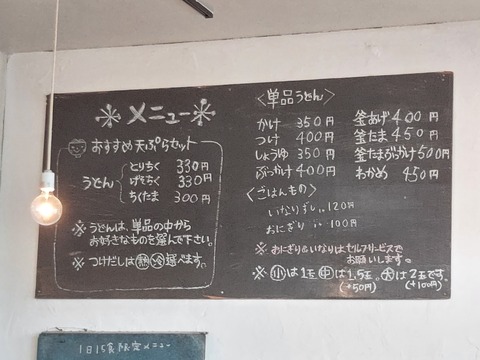 メニュー
おすすめ天ぷらセット
うどん
とりちく 330円
げそちく 330円
ちくたま 300円
※うどんは、単品の中から
お好きなものを選んで下さい。
※つけだしは熱冷選べます。
〈単品うどん〉
かけ 350円
つけ 400円
しょうゆ 350円
ぶっかけ 400円
釜あげ 400円
釜たま 450円
釜たまぶっかけ 500円
わかめ 450円
〈ごはんもの〉
いなりずし‥120円
おにぎり‥100円
※おにぎり&いなりはセルフサービスで
お願いします。
※小は1玉中は1.5玉。大は2玉です。
(+50円) (+100円)
1日15食限定メニュー